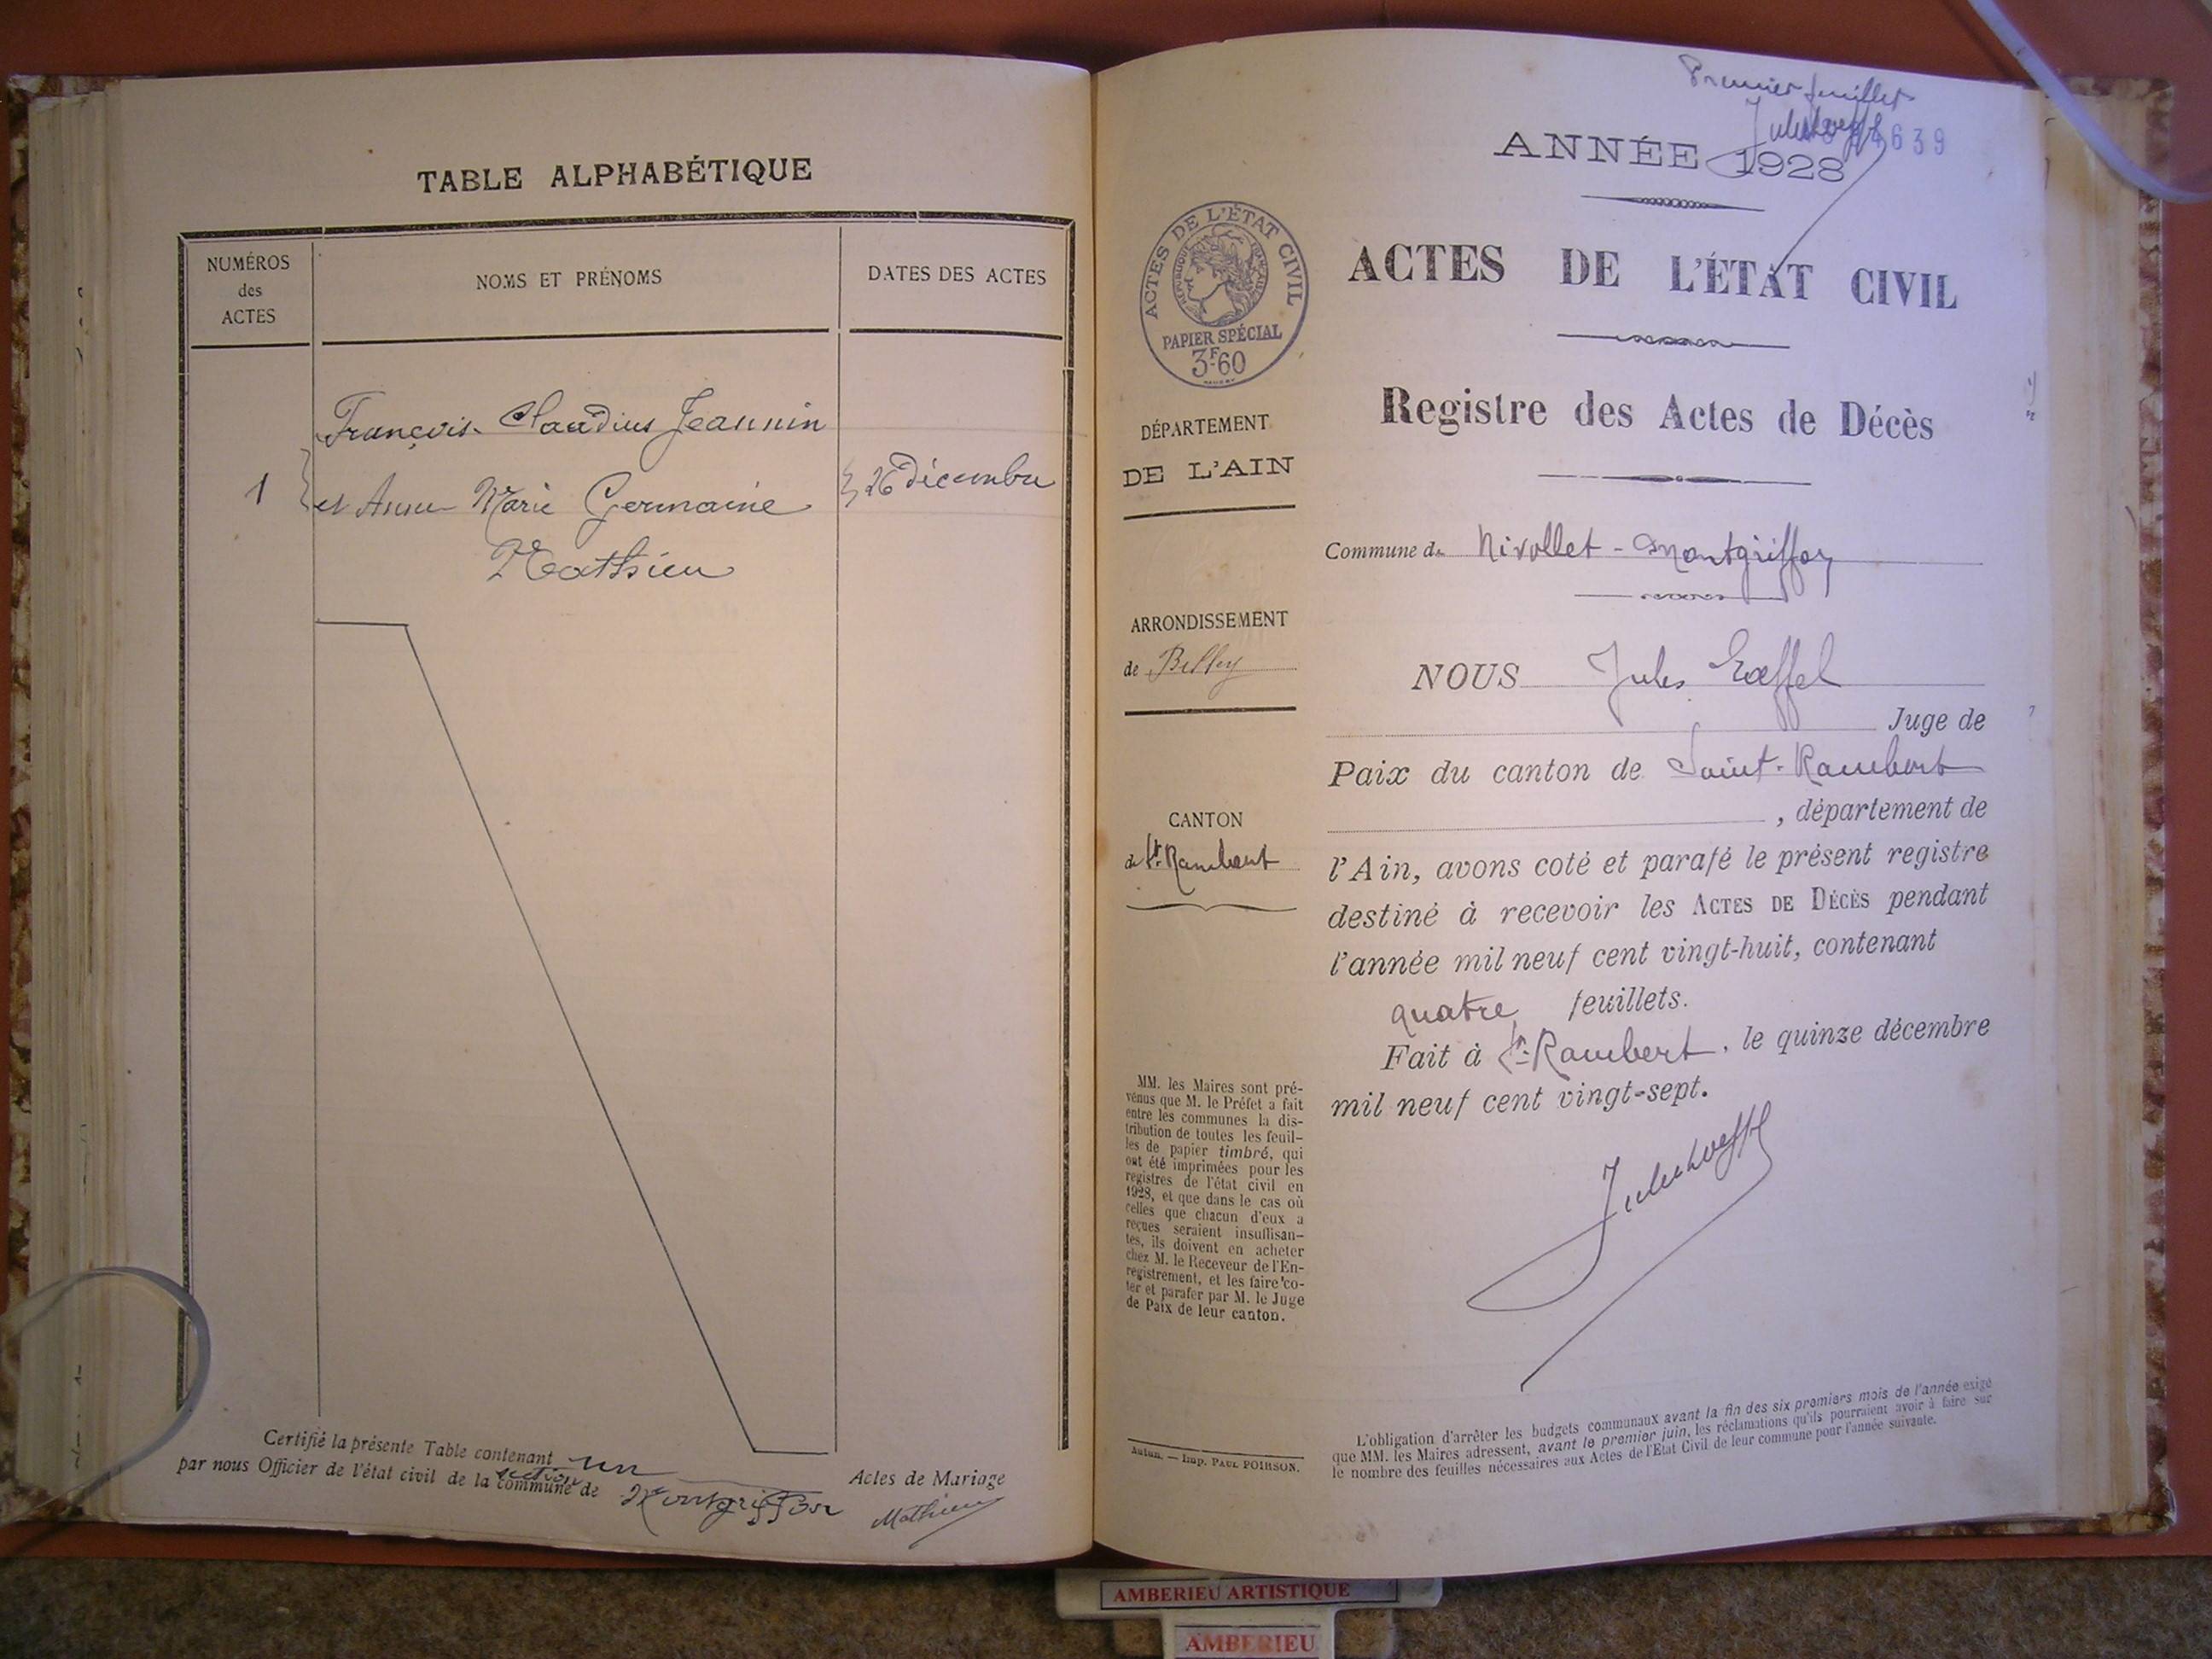 TABLE ALPHABÉTIQUE
NUMÉROS
des
ACTES
NOMS ET PRÉNOMS
DATES DES ACTES
François-Claudius Jeannin
1
et Anne Marie Germaine
26 Décembre
Mathieu
Certifié la présente Table contenant un
par nous Officier de l'état civil de la commune de
section
Montgriffon
Actes de Mariage
Mathieu
Premier feuillet
639
ANNÉE 1928
ACTES DE L'ÉTAT CIVIL
RÉPUBLIQUE FRANÇAISE
PAPIER SPÉCIAL
3F.60
ACTES DE L'ÉTAT CIVIL
Registre des Actes de Décès
DÉPARTEMENT
DE L'AIN
Commune de Nivollet-Montgriffon
ARRONDISSEMENT
de Belley
NOUS Jules
Juge de
Paix du canton de Saint-Rambert
, département de
CANTON
de St. Rambert
l'Ain, avons coté et parafé le présent registre
destiné à recevoir les ACTES DE DÉCÈS pendant
l'année mil neuf cent vingt-huit, contenant
quatre feuillets.
Fait à St-Rambert, le quinze décembre
mil neuf cent vingt-sept.
MM. les Maires sont pré-
venus que M. le Préfet a fait
entre les communes la dis-
tribution de toutes les feuil-
les de papier timbré, qui
ont été imprimées pour les
registres de l'état civil en
1928, et que dans le cas où
celles que chacun d'eux a
reçues seraient insuffisan-
tes, ils doivent en acheter
chez M. le Receveur de l'En-
registrement, et les faire co-
ter et parafer par M. le Juge
de Paix de leur canton.
Autun. — Imp. PAUL POIRSON.
L'obligation d'arrêter les budgets communaux avant la fin des six premiers mois de l'année exige
que MM. les Maires adressent, avant le premier juin, les réclamations qu'ils pourraient avoir à faire sur
le nombre des feuilles nécessaires aux Actes de l'Etat Civil de leur commune pour l'année suivante.
AMBERIEU ARTISTIQUE
AMBERIEU